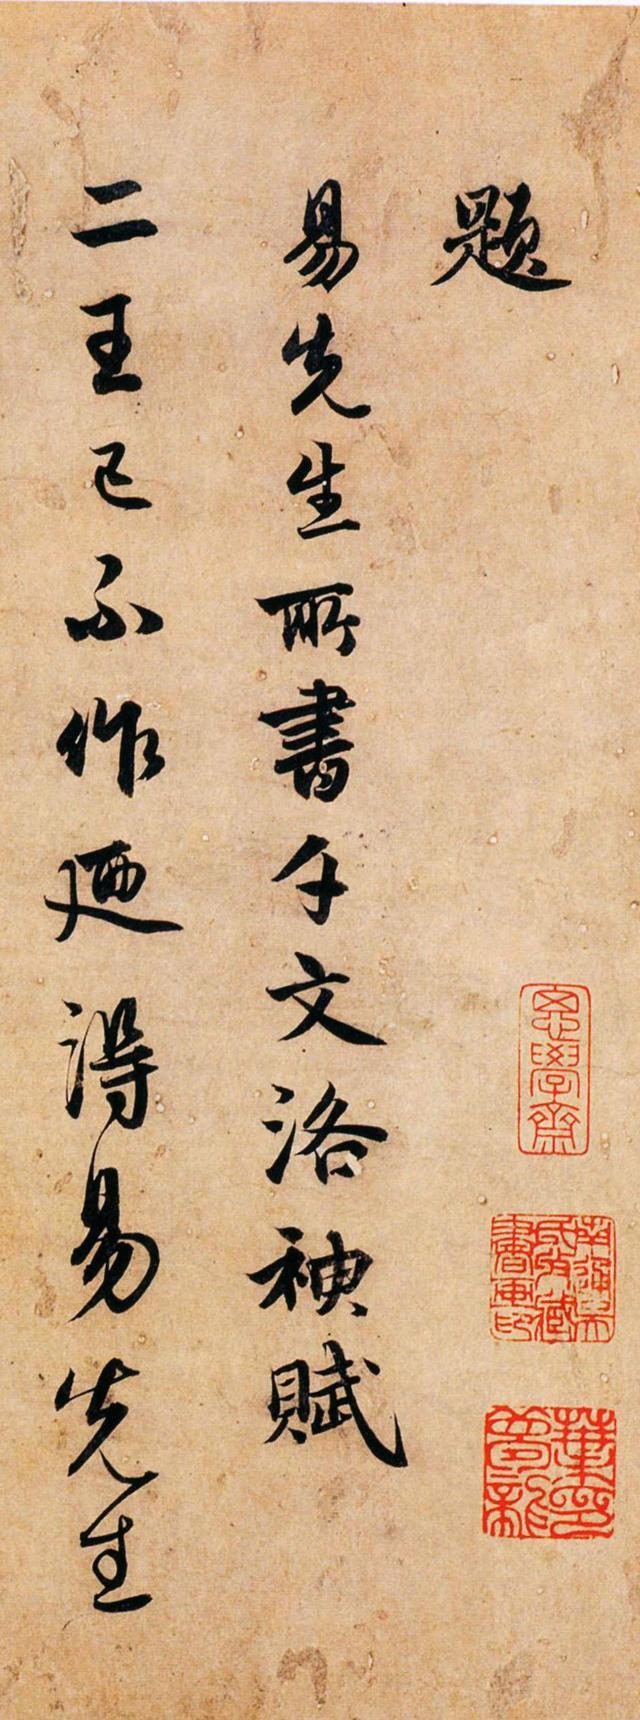 題
易先生所書千文洛神賦
二王已不作迺得易先生
思學齋